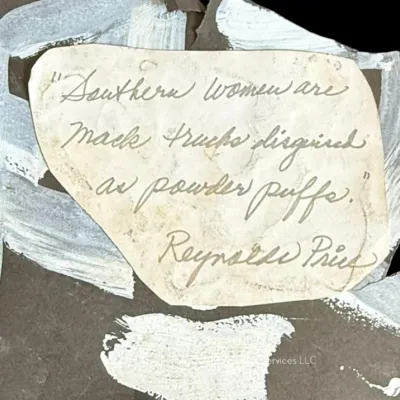 "Southern Women are
Mack trucks disguised
as powder puffs."
Reynolds Price
ervices LLC